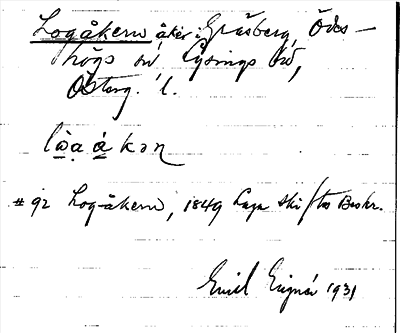 Logåkern åker: Gråsberg, Ödes-
högs sn, Lysings hd,
Österg. l.
lò̱a̤á̱kən
#92 Log-åkern, 1849 Laga skiftes Beskr.
Emil 1931